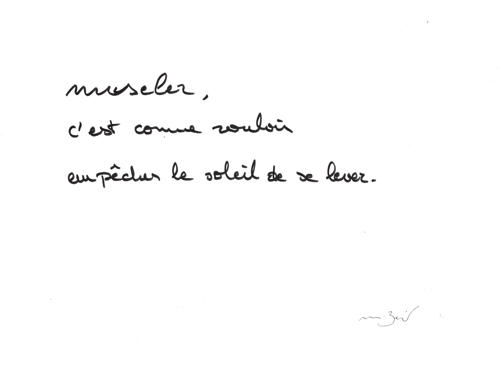 museler,
c'est comme vouloir
empêcher le soleil de se lever.